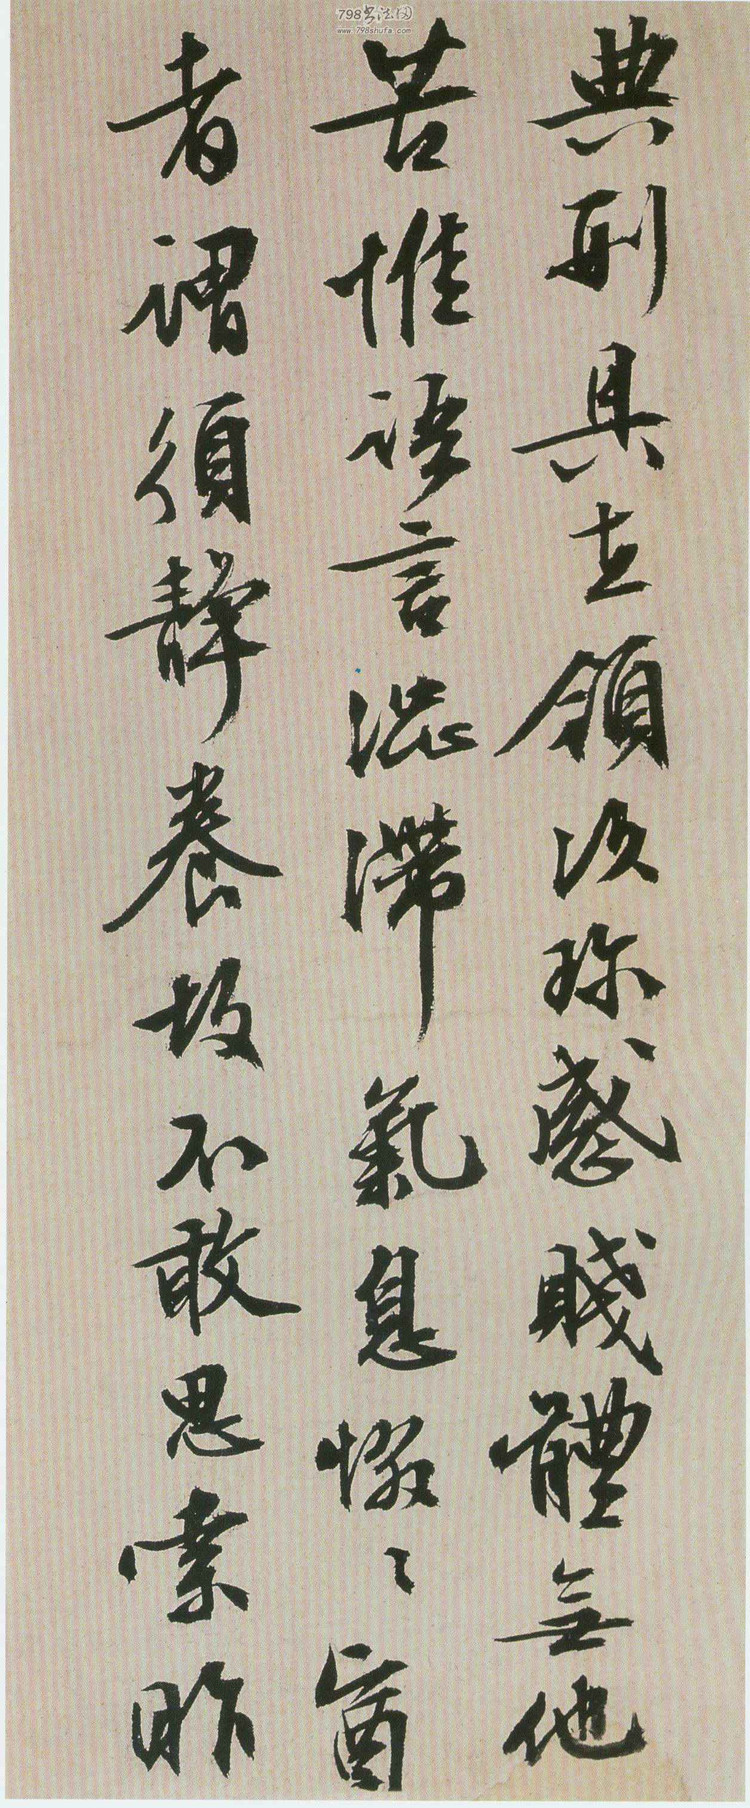 798书法网
www.798shufa.com
典刑具在領次珎感賤體無他
苦惟語言澁滯氣息惙〻
者謂須靜養故不敢思索昨